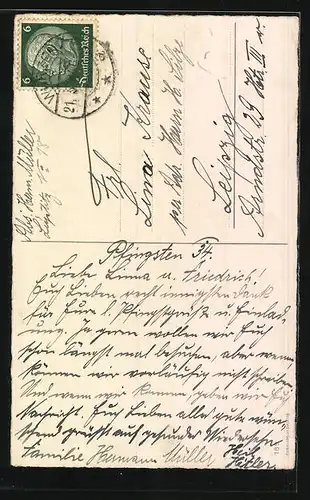 6 Deutsches Reich 6
21.
Abs. Herm. Müller
Frl.
Lina Krause
per Adr. Herrn H.
Leipzig
Arndtstr. 29 III r.
Pfingsten 34.
Liebe Linna u. Friedrich!
Euch Lieben recht innigsten Dank
für Eure l. Pfingstgrüße u. Einlad-
ung. Ja gern wollen wir Euch
schon längst mal besuchen, aber wenn
können wir vorläufig nicht schreiben
Und wenn wir kommen, geben wir Euch
Nachricht. Euch Lieben alles gute wün-
schend grüsst auf gesundes Wiedersehn
Familie Hermann Müller
Heil
Hitler